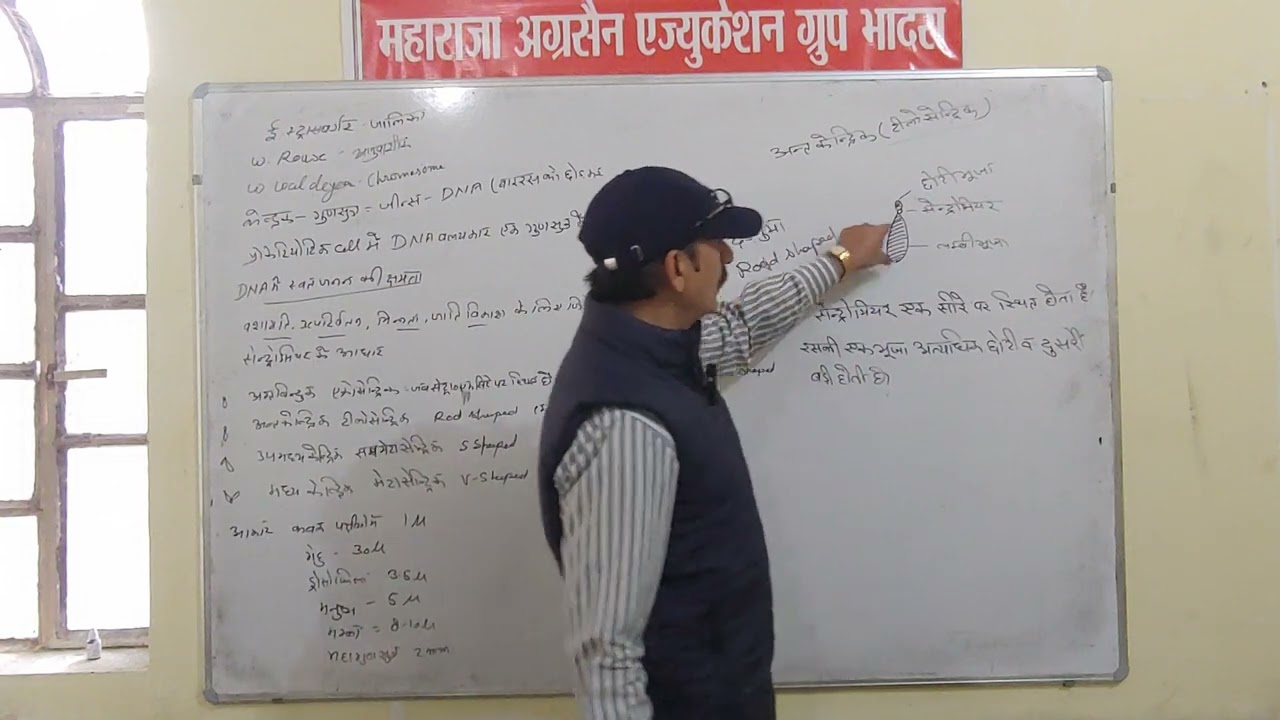 महाराजा अग्रसैन एज्युकेशन ग्रुप भादरा
ई. स्ट्रासबर्गर जालिका
W. Rouse - आनुवांशिक
W waldeyer - Chromosome
केन्द्रक - गुणसूत्र = जीन्स - DNA (वायरस को छोड़कर
प्रोकेरियोटिक cell में DNA वलयाकार एक गुणसूत्र है
DNA में स्वतः जनन की क्षमता
वंशागति, उत्परिवर्तन, भिन्नता, जाति विकास के लिए
सेन्ट्रोमियर के आधार
एक्रोसेन्ट्रिक - जब सेन्ट्रो सिरे पर स्थित है
अन्तकेन्द्रिक टीलोसेन्ट्रिक Rod shaped
उपमध्यकेन्द्रिक सबमेटासेन्ट्रिक S Shaped
मध्य केन्द्रिक मेटासेन्ट्रिक V-Shaped
आकार कवक पक्षीयों 1 μ
30μ
ड्रोसोफिला 3.5 μ
मनुष्य - 5 μ
मक्का = 8-10μ
महागुणसूत्र 2 mm
अन्तकेन्द्रिक (टीलोसेन्ट्रिक)
छोटी भुजा
सेन्ट्रोमियर
लम्बी भुजा
Rood shaped
सेन्ट्रोमियर एक सीरे पर स्थित होता है
इसकी एक भुजा अत्यधिक छोटी व दुसरी
बड़ी होती है।
shaped